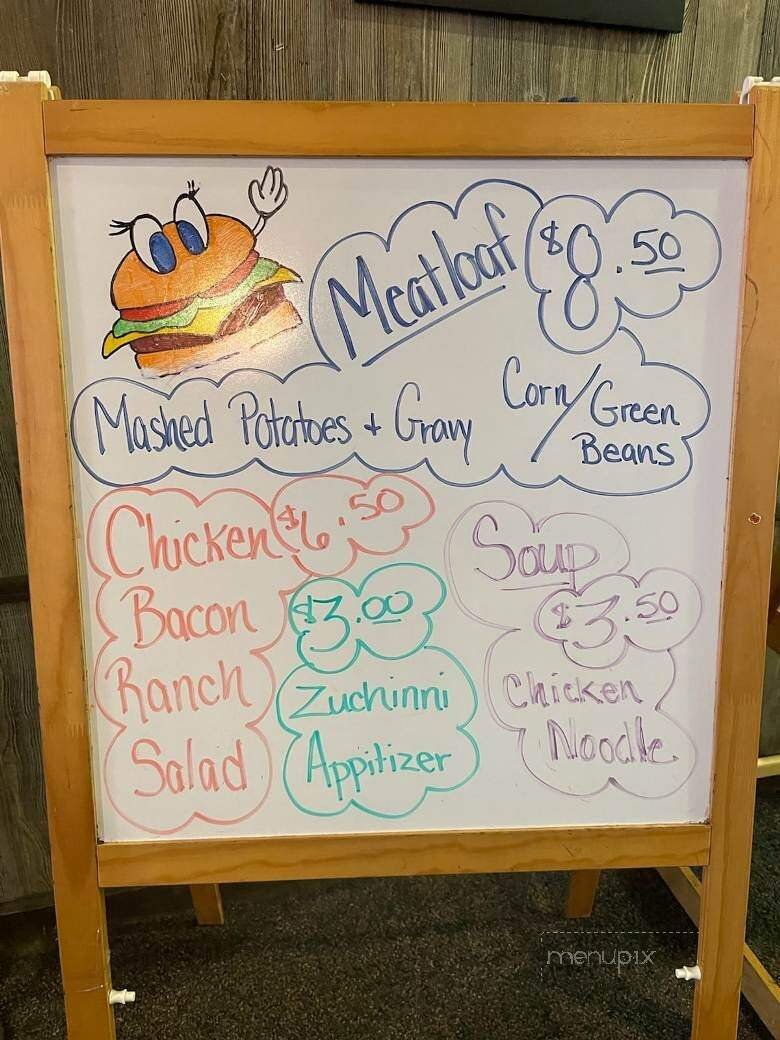 Meatloaf $8.50
Mashed Potatoes + Gravy Corn/Green
Beans
Chicken $6.50
Bacon
Ranch
Salad
$3.00
Zuchinni
Appitizer
Soup
$3.50
Chicken
Noodle
menupix